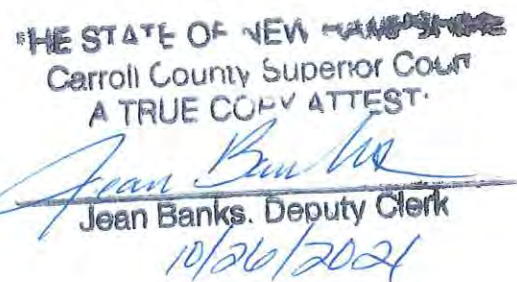 THE STATE OF NEW HAMPSHIRE
Carroll County Superior Court
A TRUE COPY ATTEST:
Jean Banks
Jean Banks. Deputy Clerk
10/26/2021